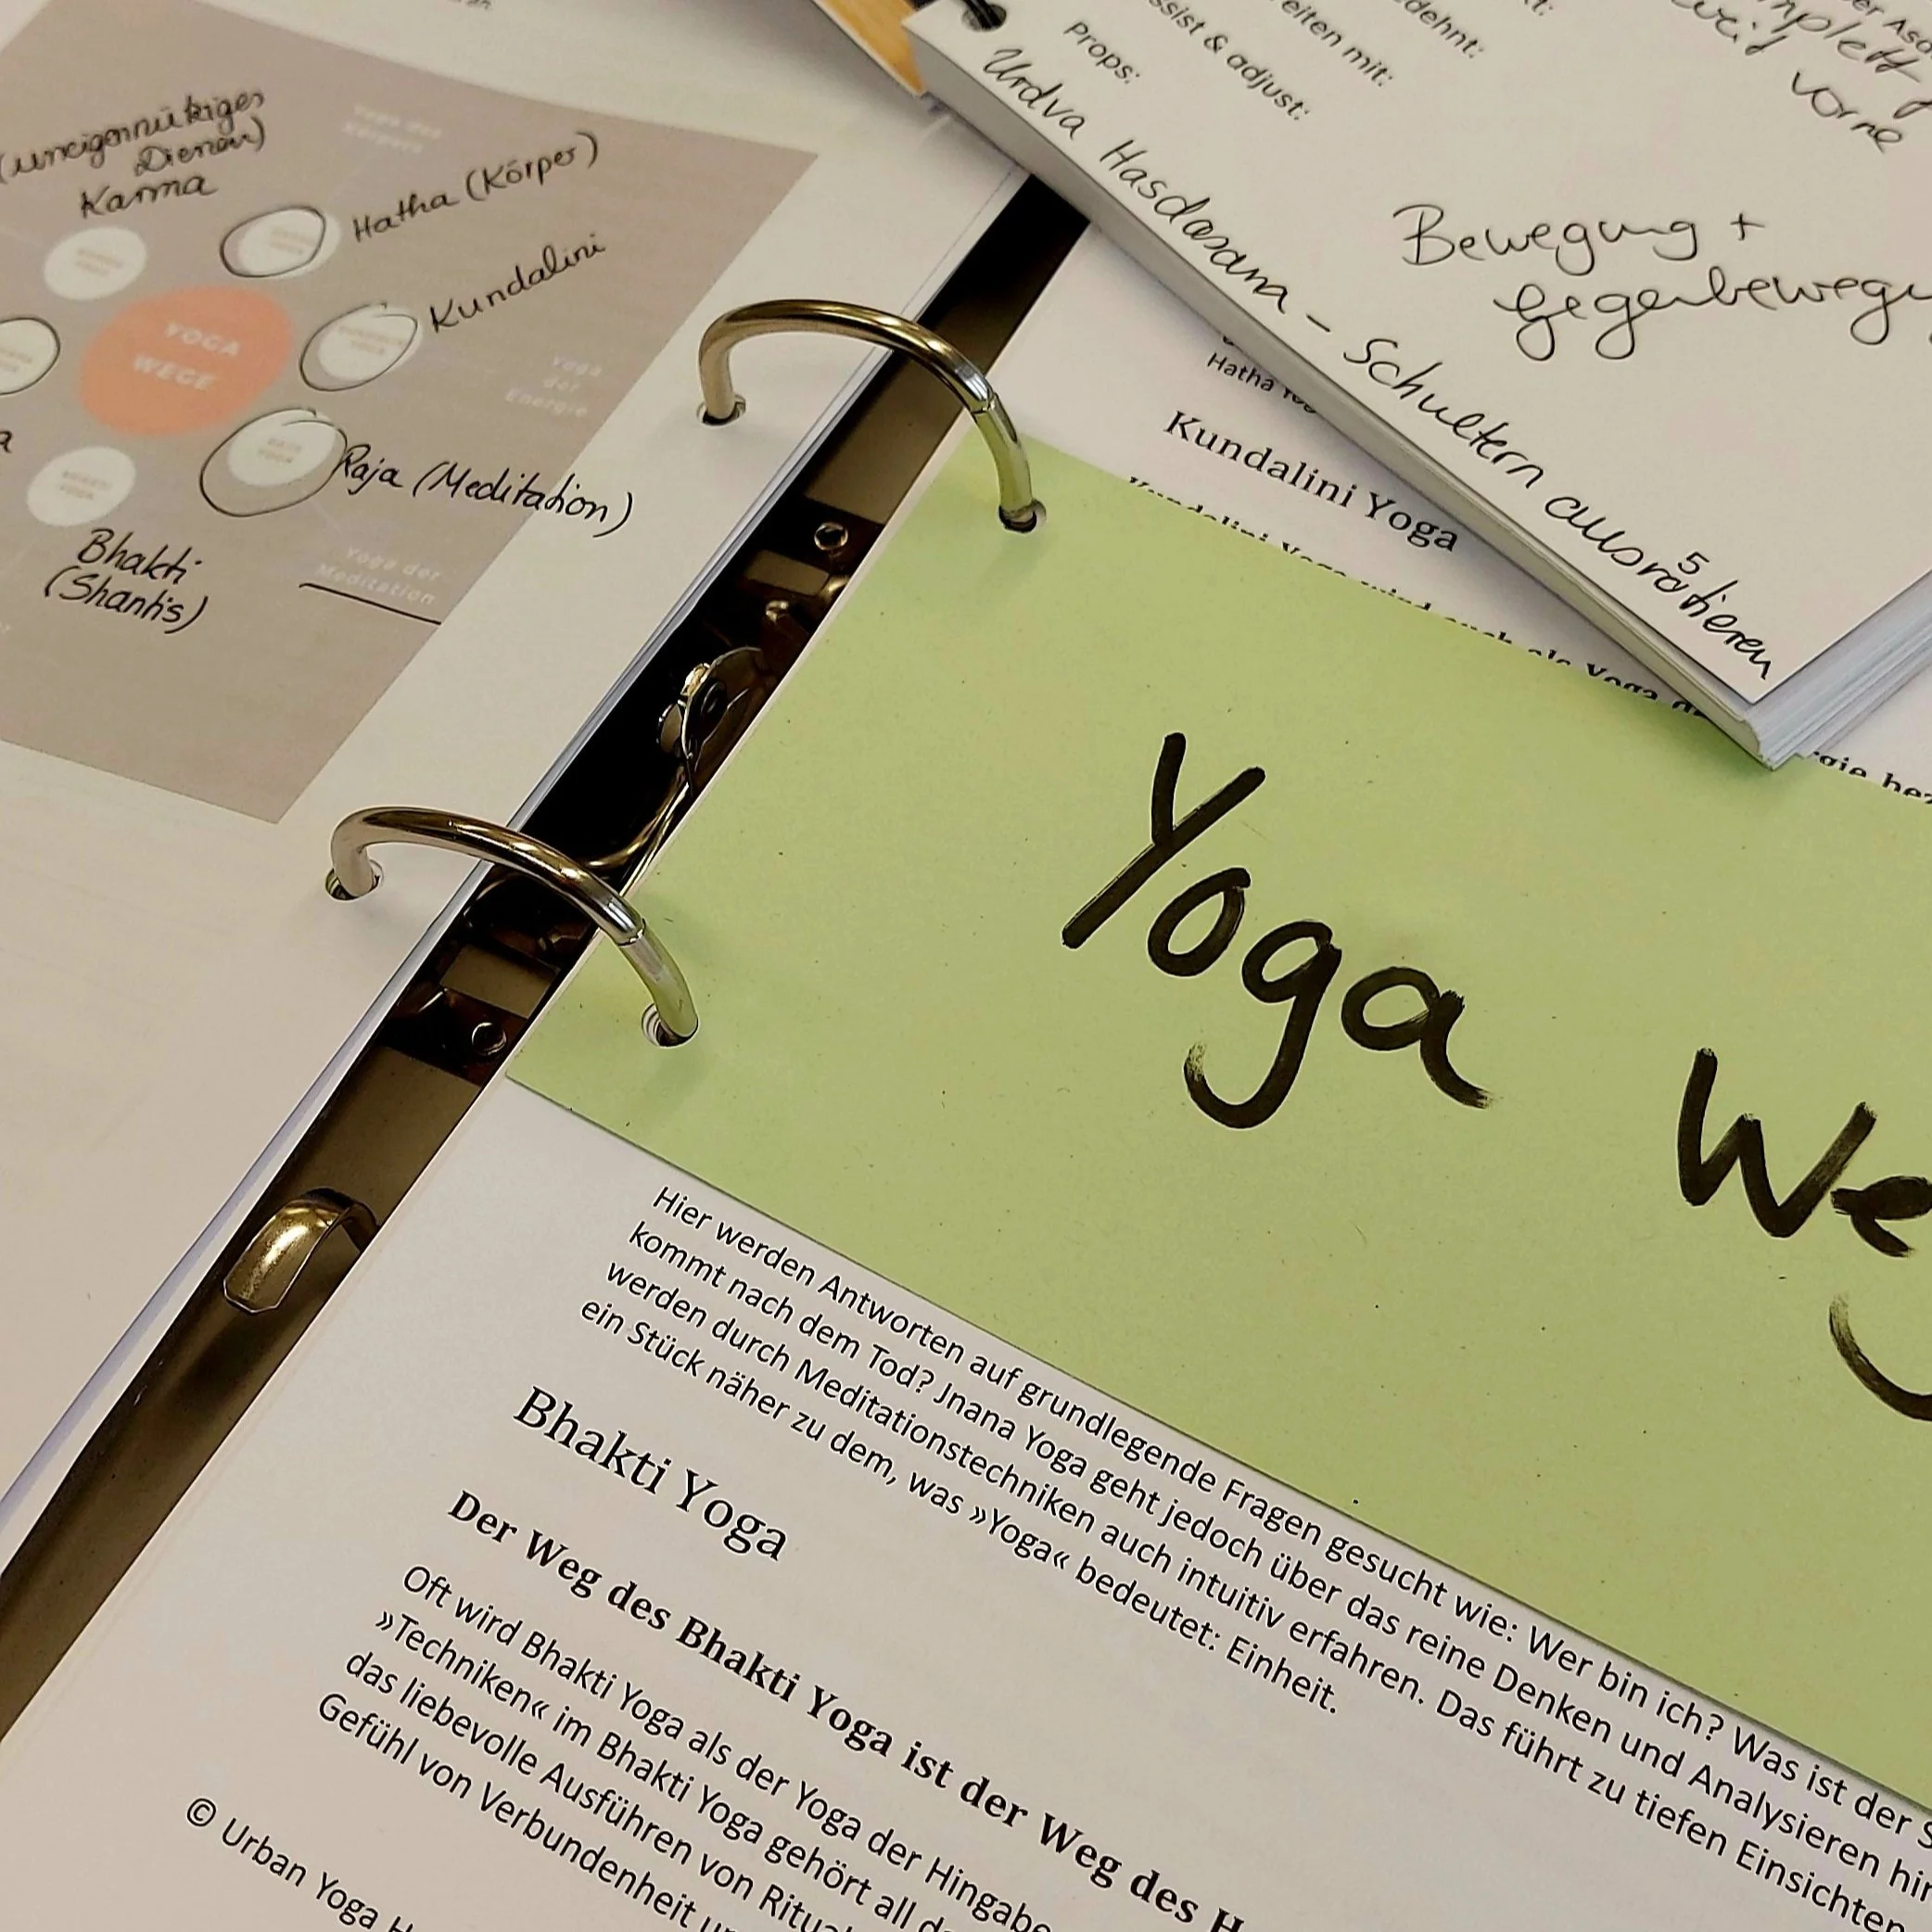 (uneigennütziges
Dienen)
Karma
Hatha (Körper)
Kundalini
YOGA
WEGE
Yoga
der
Energie
Raja (Meditation)
Bhakti
(Shantis)
Yoga der
Meditation
Props:
ssist & adjust:
eiten mit:
dehnt:
vorne
Urdva Hasdasana – Schultern ausrotieren
5
Bewegung +
Gegenbewegu
Kundalini Yoga
Yoga We
Hier werden Antworten auf grundlegende Fragen gesucht wie: Wer bin ich? Was ist der S
kommt nach dem Tod? Jnana Yoga geht jedoch über das reine Denken und Analysieren hin
werden durch Meditationstechniken auch intuitiv erfahren. Das führt zu tiefen Einsichten
ein Stück näher zu dem, was »Yoga« bedeutet: Einheit.
Bhakti Yoga
Der Weg des Bhakti Yoga ist der Weg des H
Oft wird Bhakti Yoga als der Yoga der Hingabe
»Techniken« im Bhakti Yoga gehört all d
das liebevolle Ausführen von Ritual
Gefühl von Verbundenheit u
© Urban Yoga H